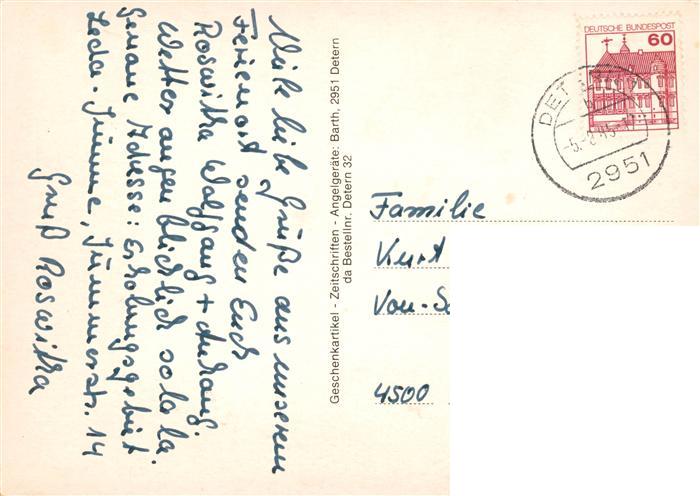 Viele liebe Grüße aus unserem
Ferienort senden Euch
Roswitha Wolfgang + Anhang.
Wetter augenblicklich so la la.
Genaue Adresse: Erholungsgebiet
Leda-Jümme, Jümmerstr. 14
Gruß Roswitha
Geschenkartikel - Zeitschriften - Angelgeräte: Barth, 2951 Detern
da Bestellnr. Detern 32
DEUTSCHE BUNDESPOST
60
DETERN
2951
Familie
Kurt
Von-S
4500